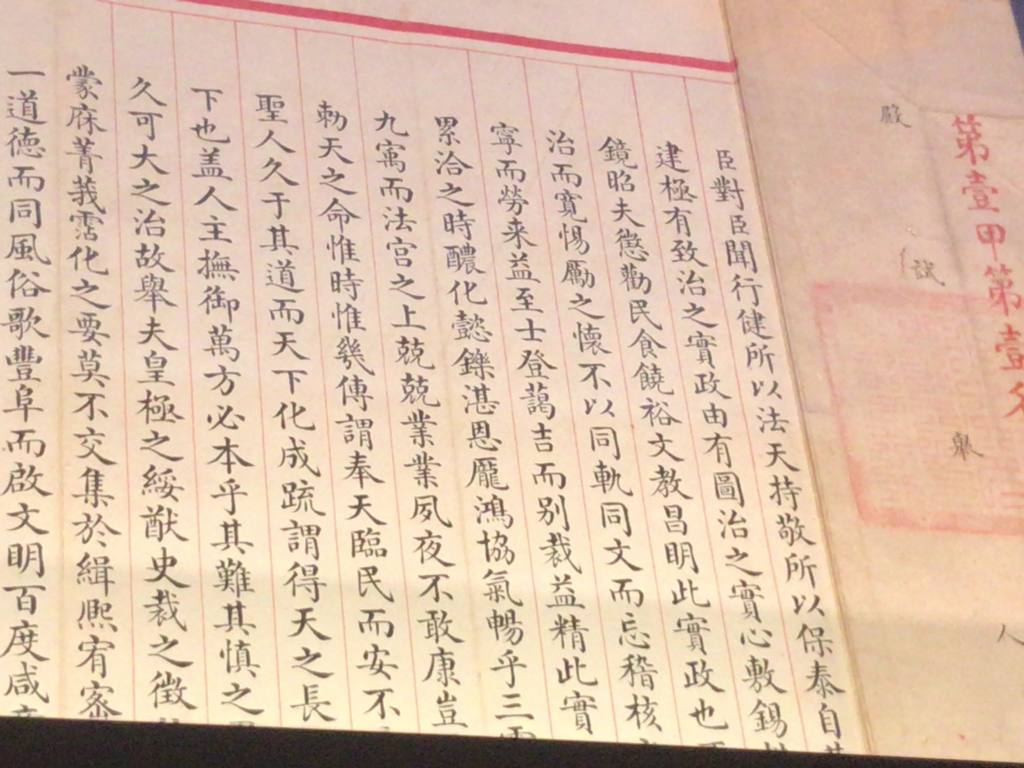 第壹甲第壹名
殿試舉人
臣對臣聞行健所以法天持敬所以保泰自
建極有致治之實政由有圖治之實心敷錫
鏡昭夫懲勸民食饒裕文教昌明此實政也
治而寬惕勵之懷不以同軌同文而忘稽核
寧而勞来益至士登藹吉而别裁益精此實
累洽之時醲化懿鑠湛恩龎鴻協氣暢乎三
九㝢而法宫之上兢兢業業夙夜不敢康豈
勑天之命惟時惟幾傳謂奉天臨民而安不
聖人久于其道而天下化成疏謂得天之長
下也盖人主撫御萬方必本乎其難其慎之
久可大之治故舉夫皇極之綏猷史裁之徵
蒙庥菁莪霑化之要莫不交集於緝熙宥密
一道德而同風俗歌豐阜而啟文明百度咸